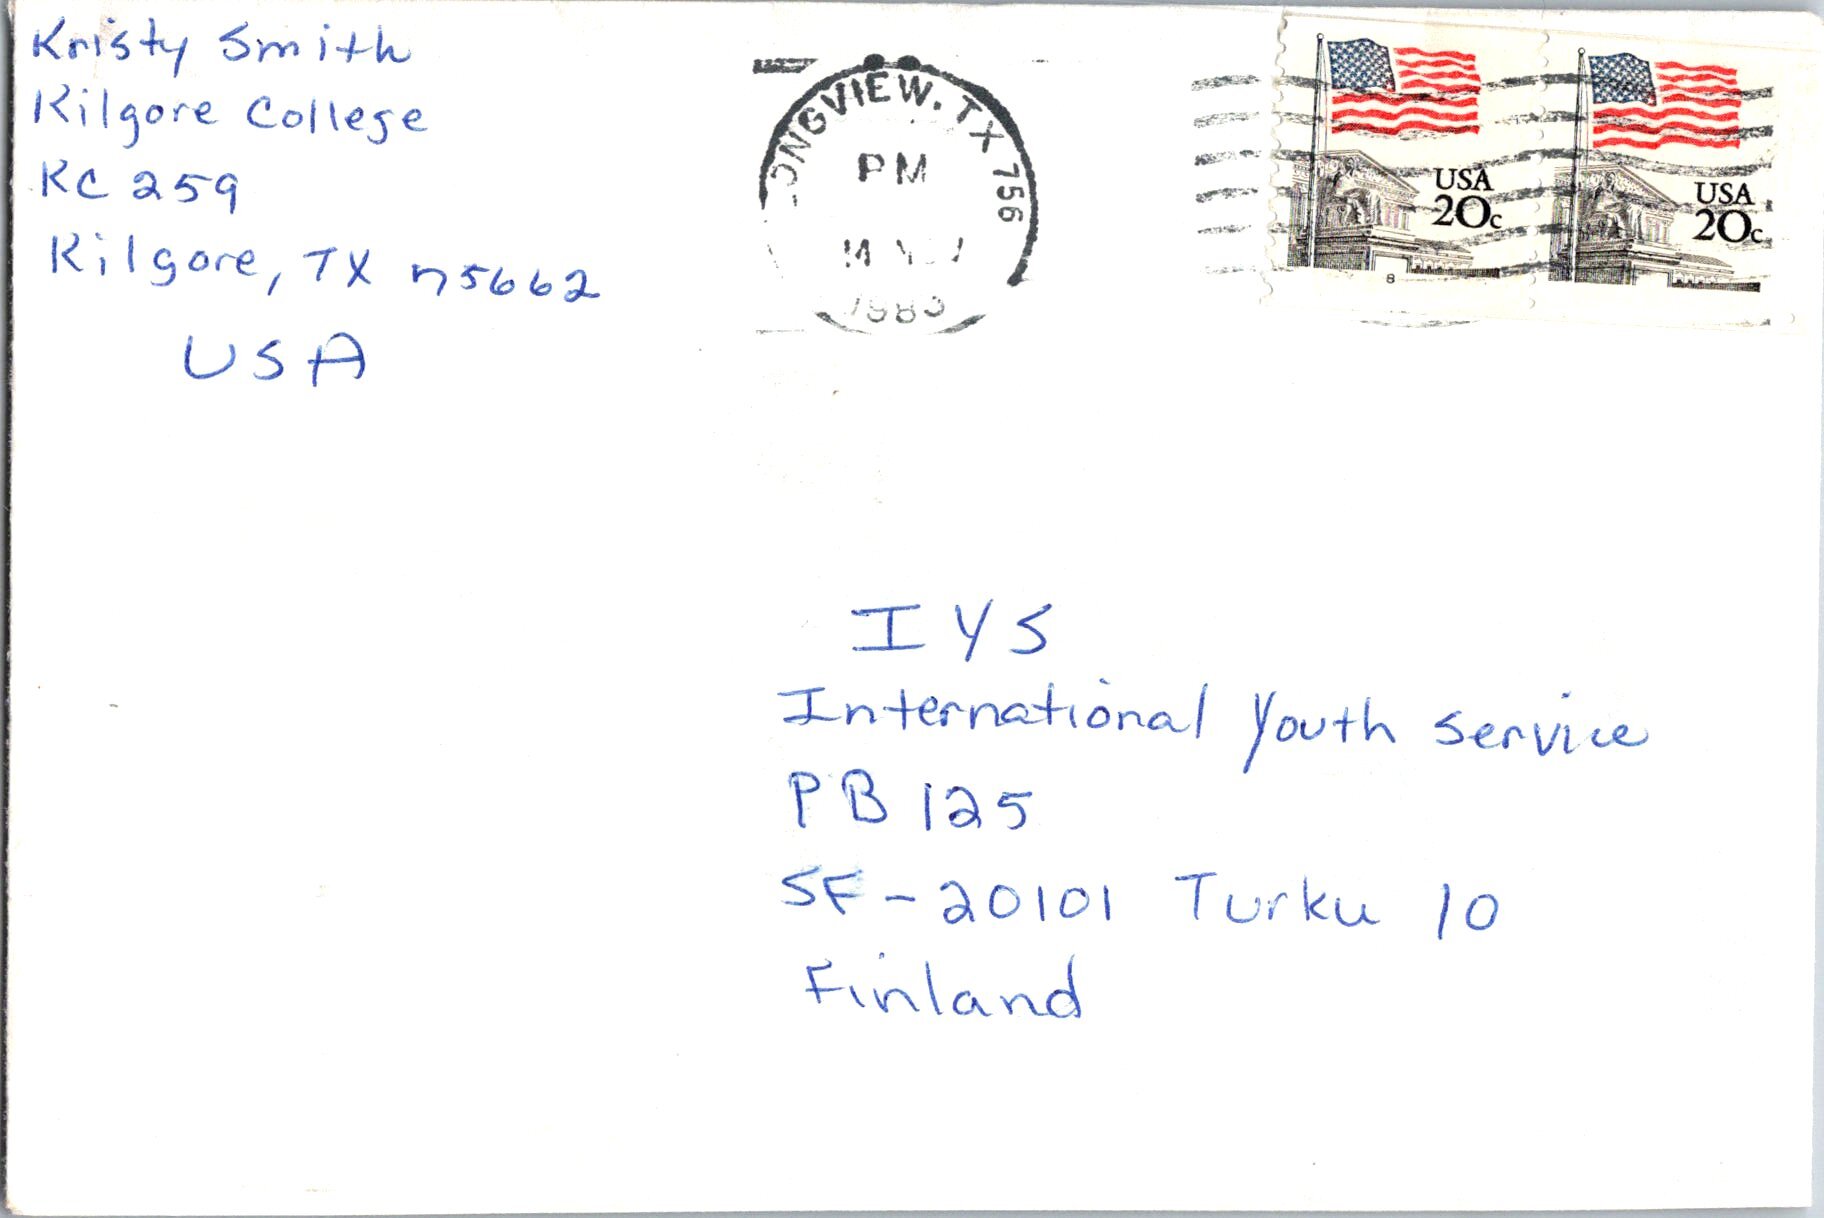 Kristy Smith
Kilgore College
KC 259
Kilgore, TX 75662
USA
LONGVIEW, TX 756
PM
USA
20c
8
USA
20c
IYS
International Youth Service
PB 125
SF-20101 Turku 10
Finland